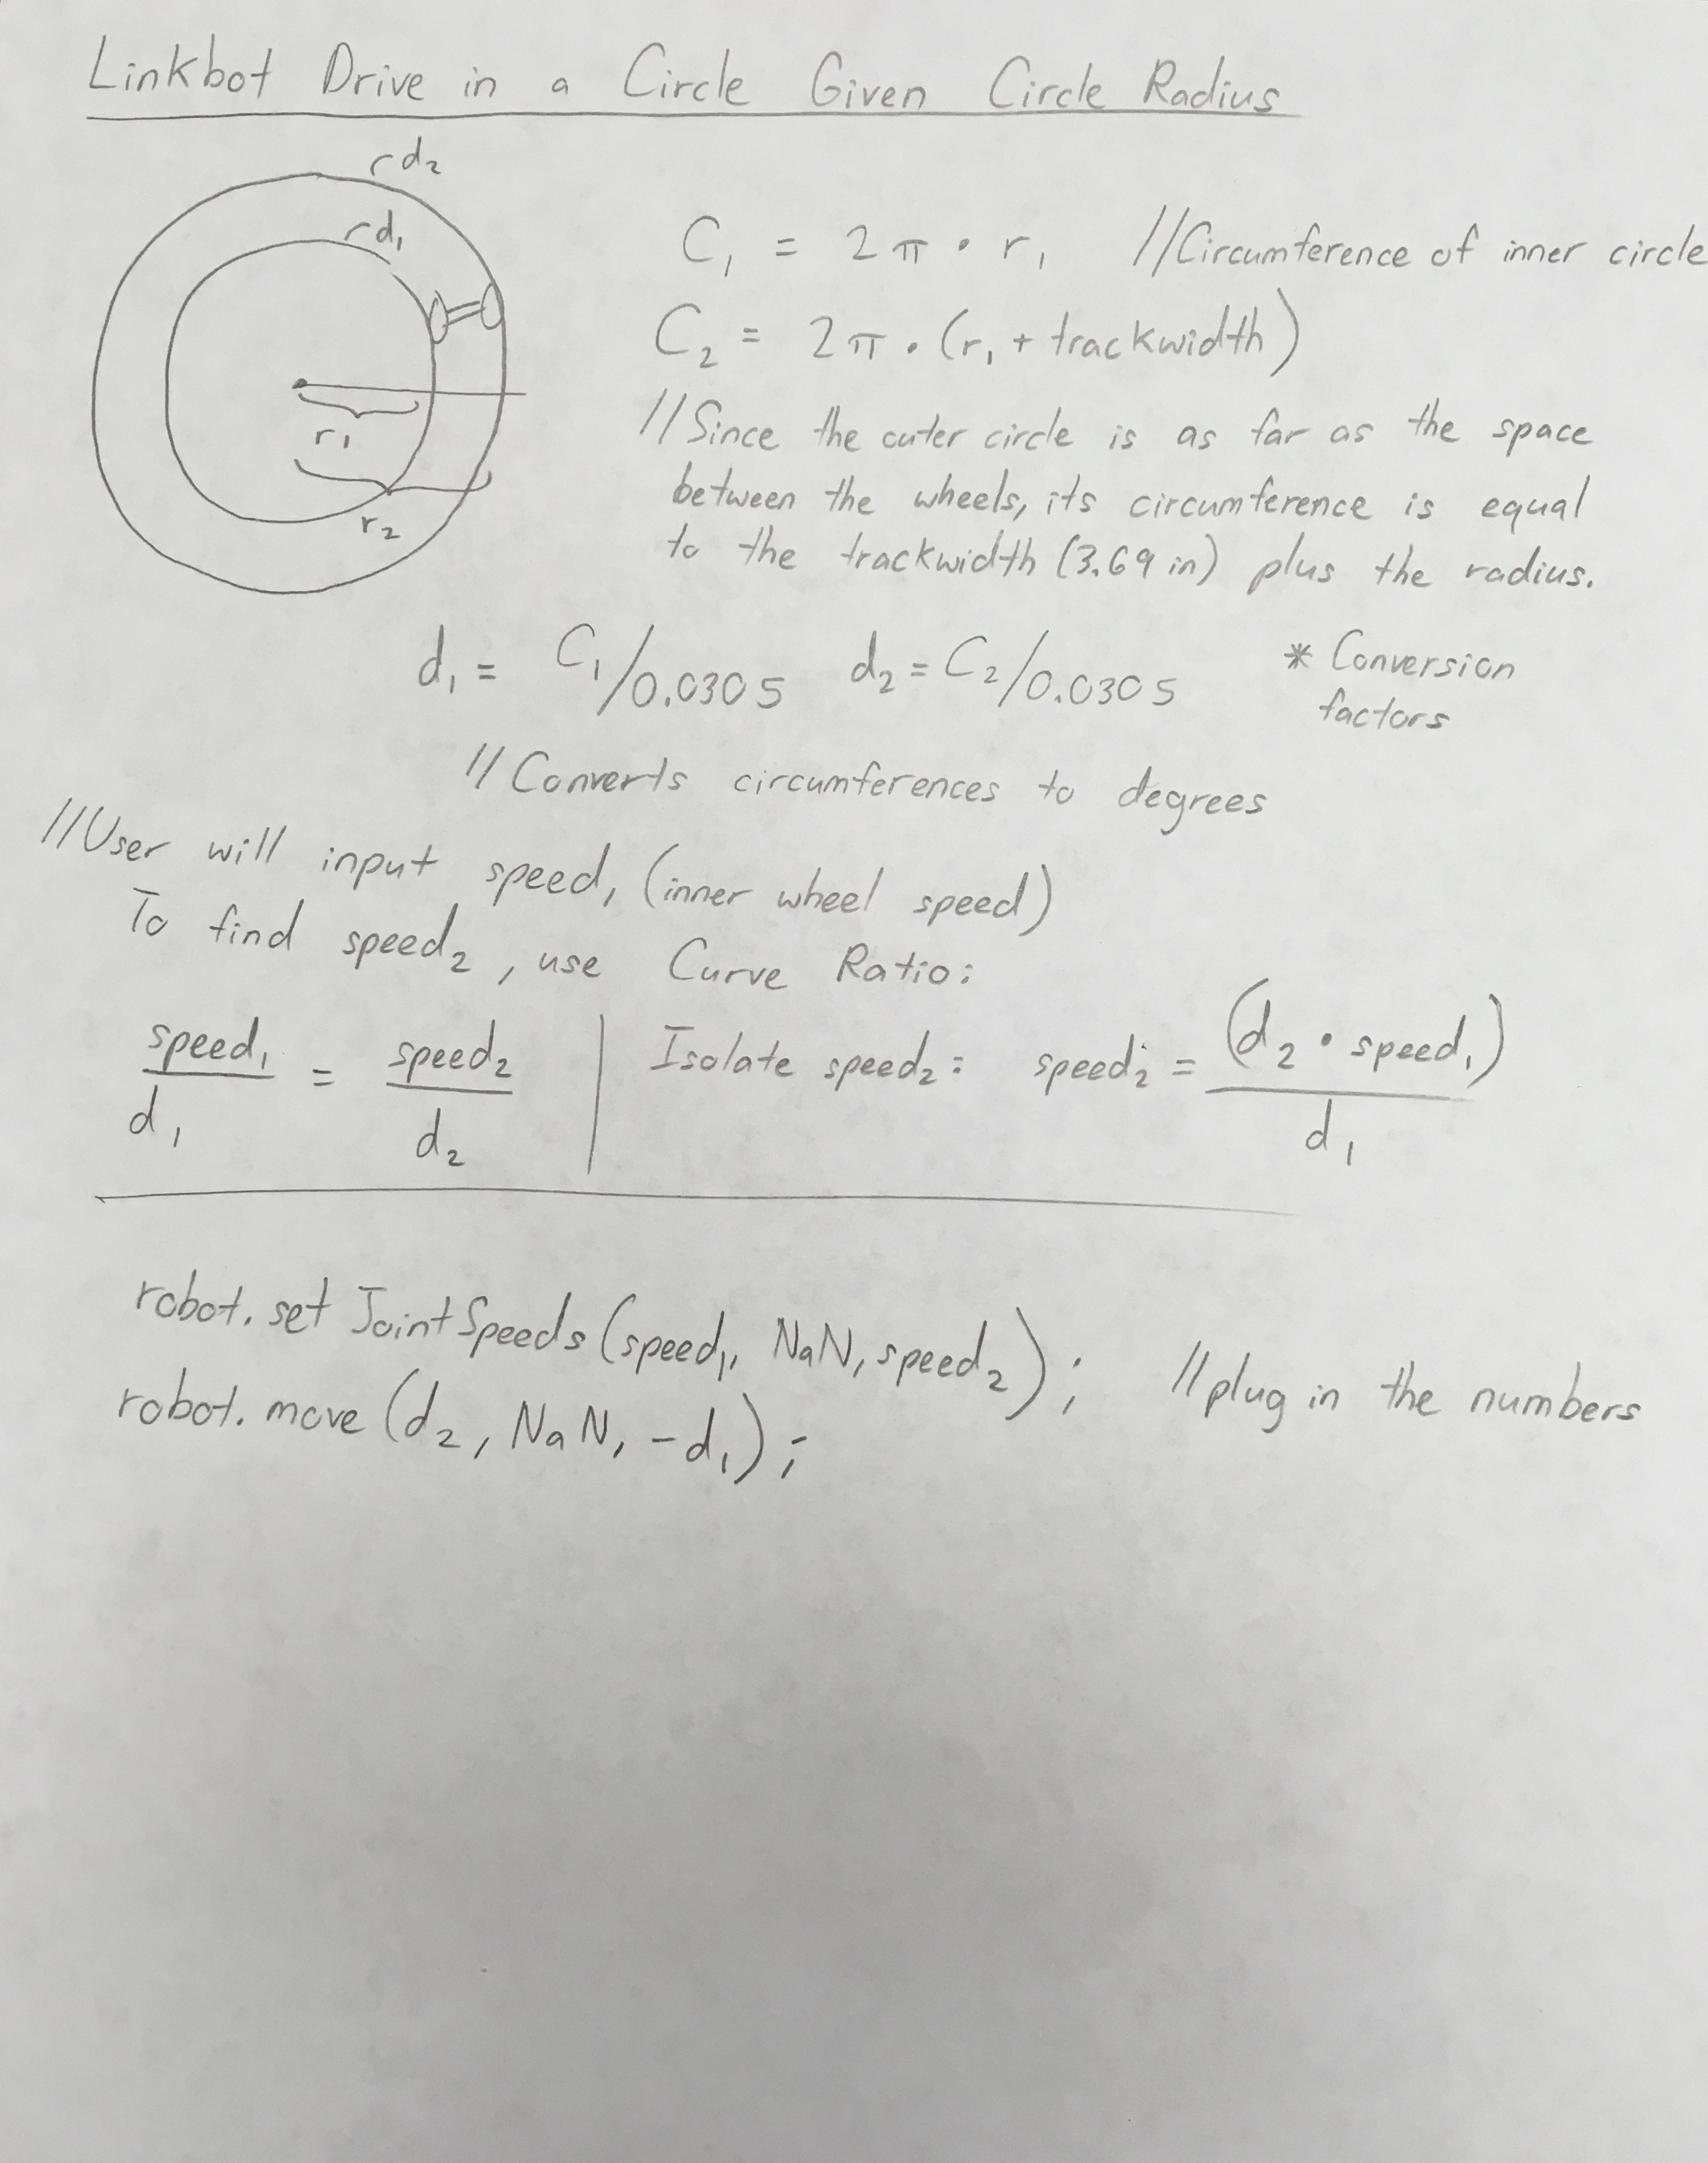 Linkbot Drive in a Circle Given Circle Radius
d₂
d₁
r₁
r₂
C₁ = 2π • r₁ //Circumference of inner circle
C₂ = 2π • (r₁ + trackwidth)
//Since the outer circle is as far as the space
between the wheels, its circumference is equal
to the trackwidth (3.69 in) plus the radius.
d₁ = C₁/0.0305 d₂ = C₂/0.0305 * Conversion
factors
//Converts circumferences to degrees
//User will input speed₁ (inner wheel speed)
To find speed₂, use Curve Ratio:
speed₁/d₁ = speed₂/d₂ | Isolate speed₂: speed₂ = (d₂ • speed₁)/d₁
robot.setJointSpeeds(speed₁, NaN, speed₂); //plug in the numbers
robot.move(d₂, NaN, -d₁);